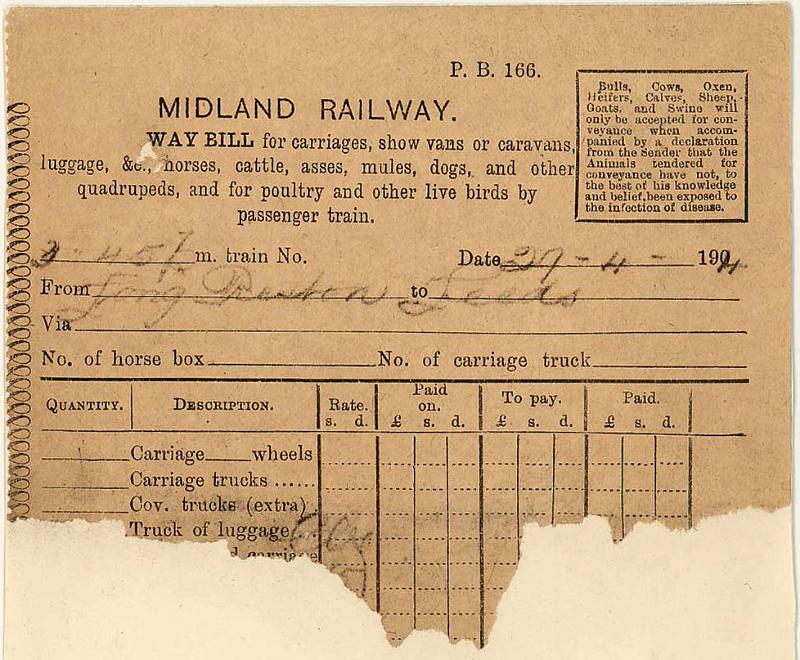 P. B. 166.
MIDLAND RAILWAY.
WAY BILL for carriages, show vans or caravans,
luggage, &c., horses, cattle, asses, mules, dogs, and other
quadrupeds, and for poultry and other live birds by
passenger train.
Bulls, Cows, Oxen,
Heifers, Calves, Sheep,
Goats, and Swine will
only be accepted for con-
veyance when accom-
panied by a declaration
from the Sender that the
Animals tendered for
conveyance have not, to
the best of his knowledge
and belief, been exposed to
the infection of disease.
m. train No. Date 27-4- 1904
From Long Preston to Leeds
Via
No. of horse box No. of carriage truck
QUANTITY. DESCRIPTION. Rate. s. d. Paid on. £ s. d. To pay. £ s. d. Paid. £ s. d.
Carriage wheels
Carriage trucks ......
Cov. trucks (extra)
Truck of luggage
carriage